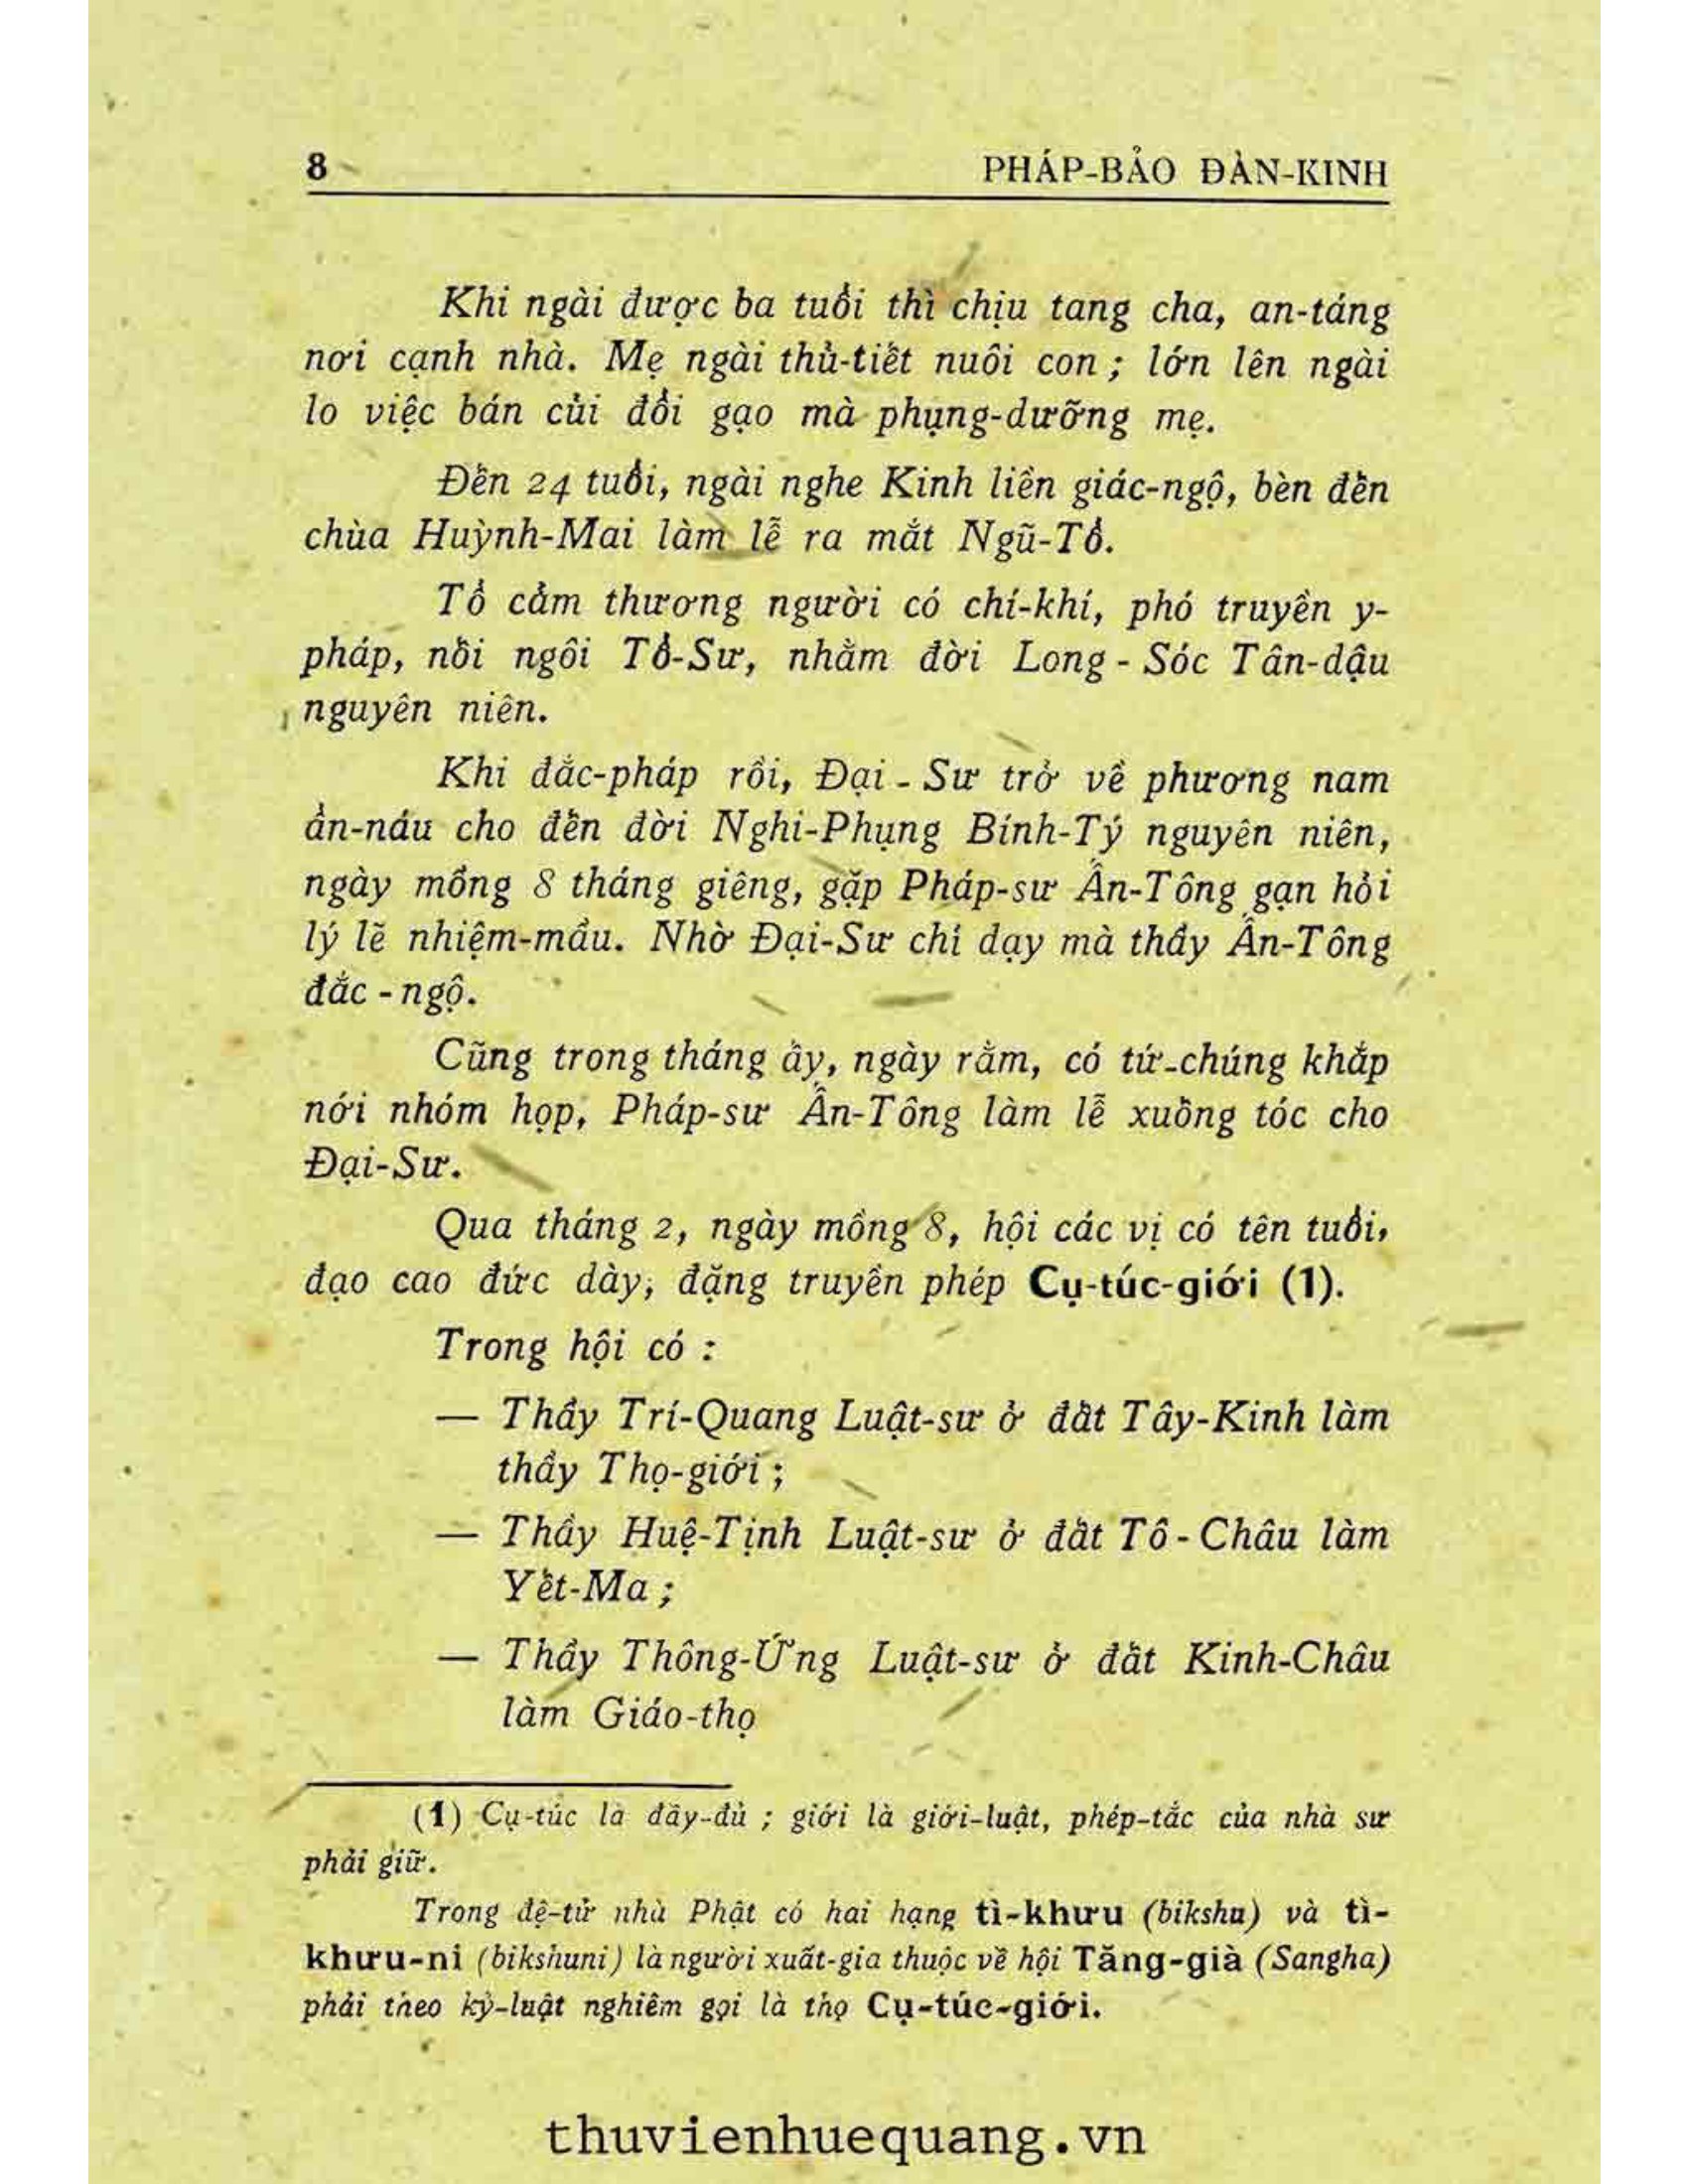 8 PHÁP-BẢO ĐÀN-KINH
Khi ngài được ba tuổi thì chịu tang cha, an-táng
nơi cạnh nhà. Mẹ ngài thủ-tiết nuôi con ; lớn lên ngài
lo việc bán củi đổi gạo mà phụng-dưỡng mẹ.
Đến 24 tuổi, ngài nghe Kinh liền giác-ngộ, bèn đến
chùa Huỳnh-Mai làm lễ ra mắt Ngũ-Tổ.
Tổ cảm thương người có chí-khí, phó truyền y-
pháp, nối ngôi Tổ-Sư, nhằm đời Long - Sóc Tân-dậu
nguyên niên.
Khi đắc-pháp rồi, Đại - Sư trở về phương nam
ẩn-náu cho đến đời Nghi-Phụng Bính-Tý nguyên niên,
ngày mồng 8 tháng giêng, gặp Pháp-sư Ấn-Tông gạn hỏi
lý lẽ nhiệm-mầu. Nhờ Đại-Sư chỉ dạy mà thầy Ấn-Tông
đắc - ngộ.
Cũng trong tháng ấy, ngày rằm, có tứ-chúng khắp
nới nhóm họp, Pháp-sư Ấn-Tông làm lễ xuống tóc cho
Đại-Sư.
Qua tháng 2, ngày mồng 8, hội các vị có tên tuổi,
đạo cao đức dày, đặng truyền phép Cụ-túc-giới (1).
Trong hội có :
— Thầy Trí-Quang Luật-sư ở đất Tây-Kinh làm
thầy Thọ-giới ;
— Thầy Huệ-Tịnh Luật-sư ở đất Tô - Châu làm
Yết-Ma ;
— Thầy Thông-Ứng Luật-sư ở đất Kinh-Châu
làm Giáo-thọ
(1) Cụ-túc là đầy-đủ ; giới là giới-luật, phép-tắc của nhà sư
phải giữ.
Trong đệ-tử nhà Phật có hai hạng tì-khưu (bikshu) và tì-
khưu-ni (bikshuni) là người xuất-gia thuộc về hội Tăng-già (Sangha)
phải theo kỷ-luật nghiêm gọi là thọ Cụ-túc-giới.
thuvienhuequang.vn